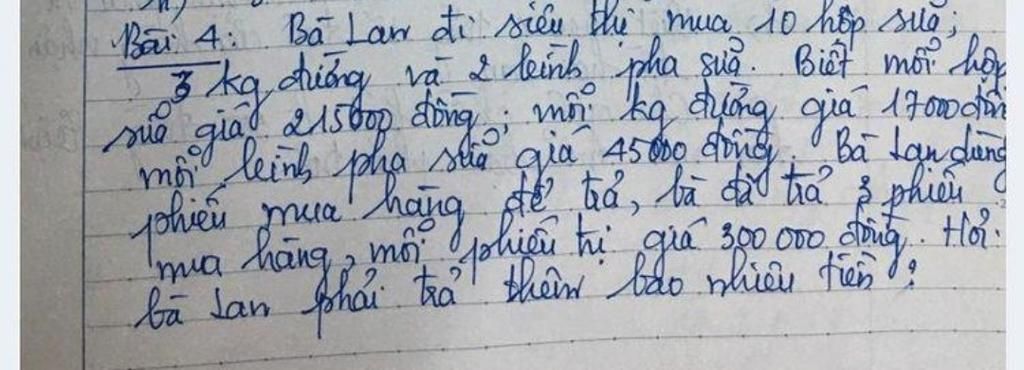 Bài 4: Bà Lan đi siêu thị mua 10 hộp sữa;
3 kg đường và 2 bình pha sữa. Biết mỗi hộp
sữa giá 215000 đồng; mỗi kg đường giá 17000 đồng
mỗi bình pha sữa giá 45000 đồng. Bà Lan dùng
phiếu mua hàng để trả, bà đã trả 3 phiếu
mua hàng, mỗi phiếu trị giá 300 000 đồng. Hỏi
bà Lan phải trả thêm bao nhiêu tiền?